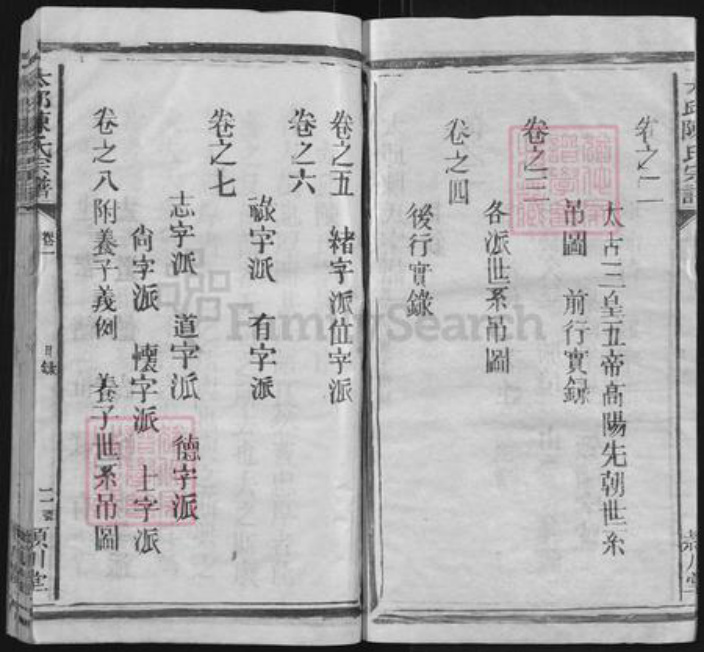 太邱陳氏宗譜
卷之二
太古三皇五帝高陽先朝世系
吊圖　前行實錄
卷之三
各派世系吊圖
卷之四
後行實錄
卷之五　緒字派位字派
卷之六
祿字派　有字派
卷之七
志字派　道字派　德字派
尙字派　懷字派　士字派
卷之八附養子義例　養子世系吊圖
太邱陳氏宗譜
卷一
目錄
潁川堂
FamilySearch